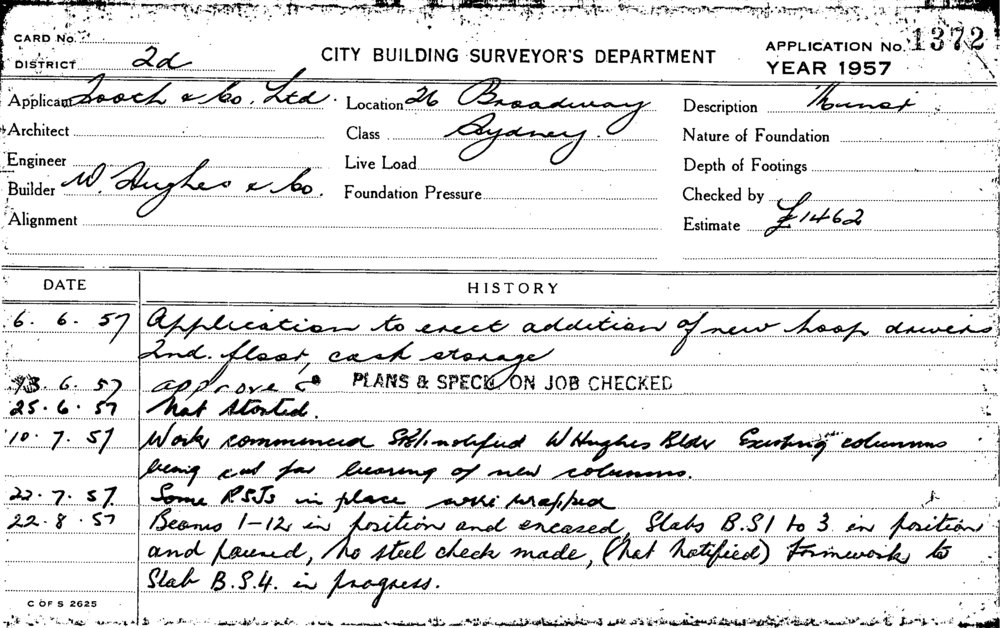 CARD No.
DISTRICT 2d
CITY BUILDING SURVEYOR'S DEPARTMENT
APPLICATION No. 1372
YEAR 1957
Applicant Tooth & Co. Ltd.
Location 26 Broadway
Description
Architect
Class Sydney.
Nature of Foundation
Engineer
Live Load
Depth of Footings
Builder W. Hughes & Co.
Foundation Pressure
Checked by
Alignment
Estimate £1462
DATE
HISTORY
6. 6. 57 Application to erect addition of new hoop drivers
2nd. floor, cask storage
13. 6. 57 approve PLANS & SPECN. ON JOB CHECKED
25. 6. 57 Not Started.
10. 7. 57 Work commenced notified W Hughes Bldr Existing columns
being cut for bearing of new columns.
22. 7. 57. Some RSJs in place wire wrapped
22. 8. 57 Beams 1-12 in position and encased, Slabs B.S1 to 3 in position
and poured, No steel check made, (Not Notified) Formwork to
Slab B.S.4. in progress.
C OF S 2625